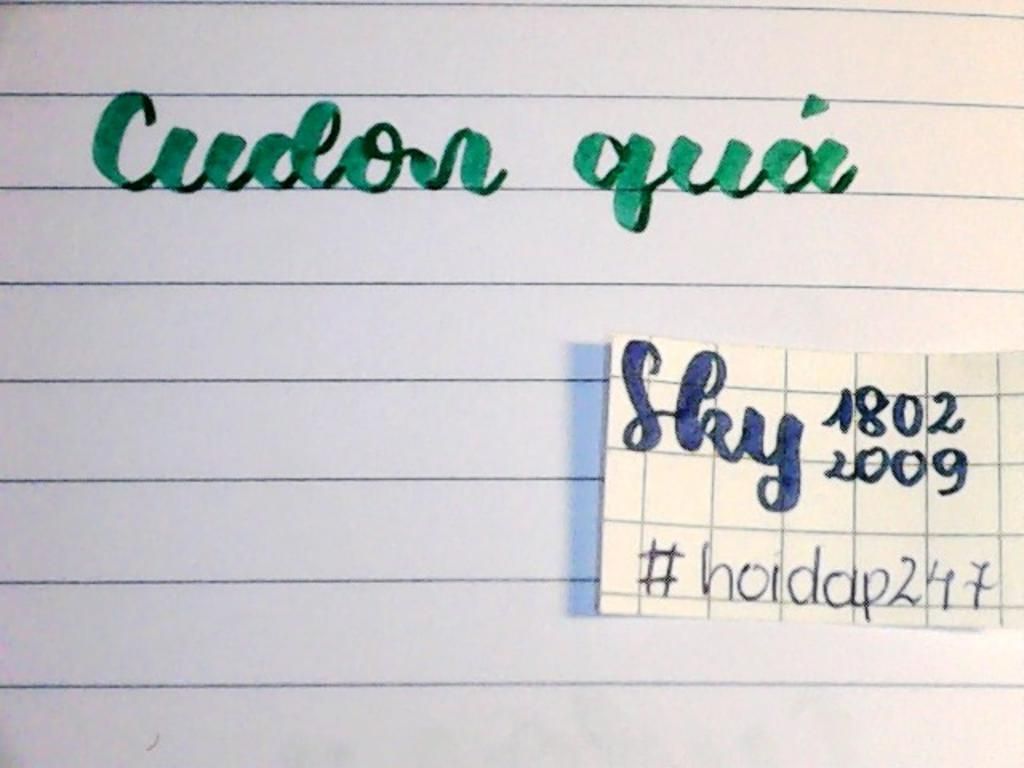 Cudon quá
Sky 1802
2009
#hoidap247